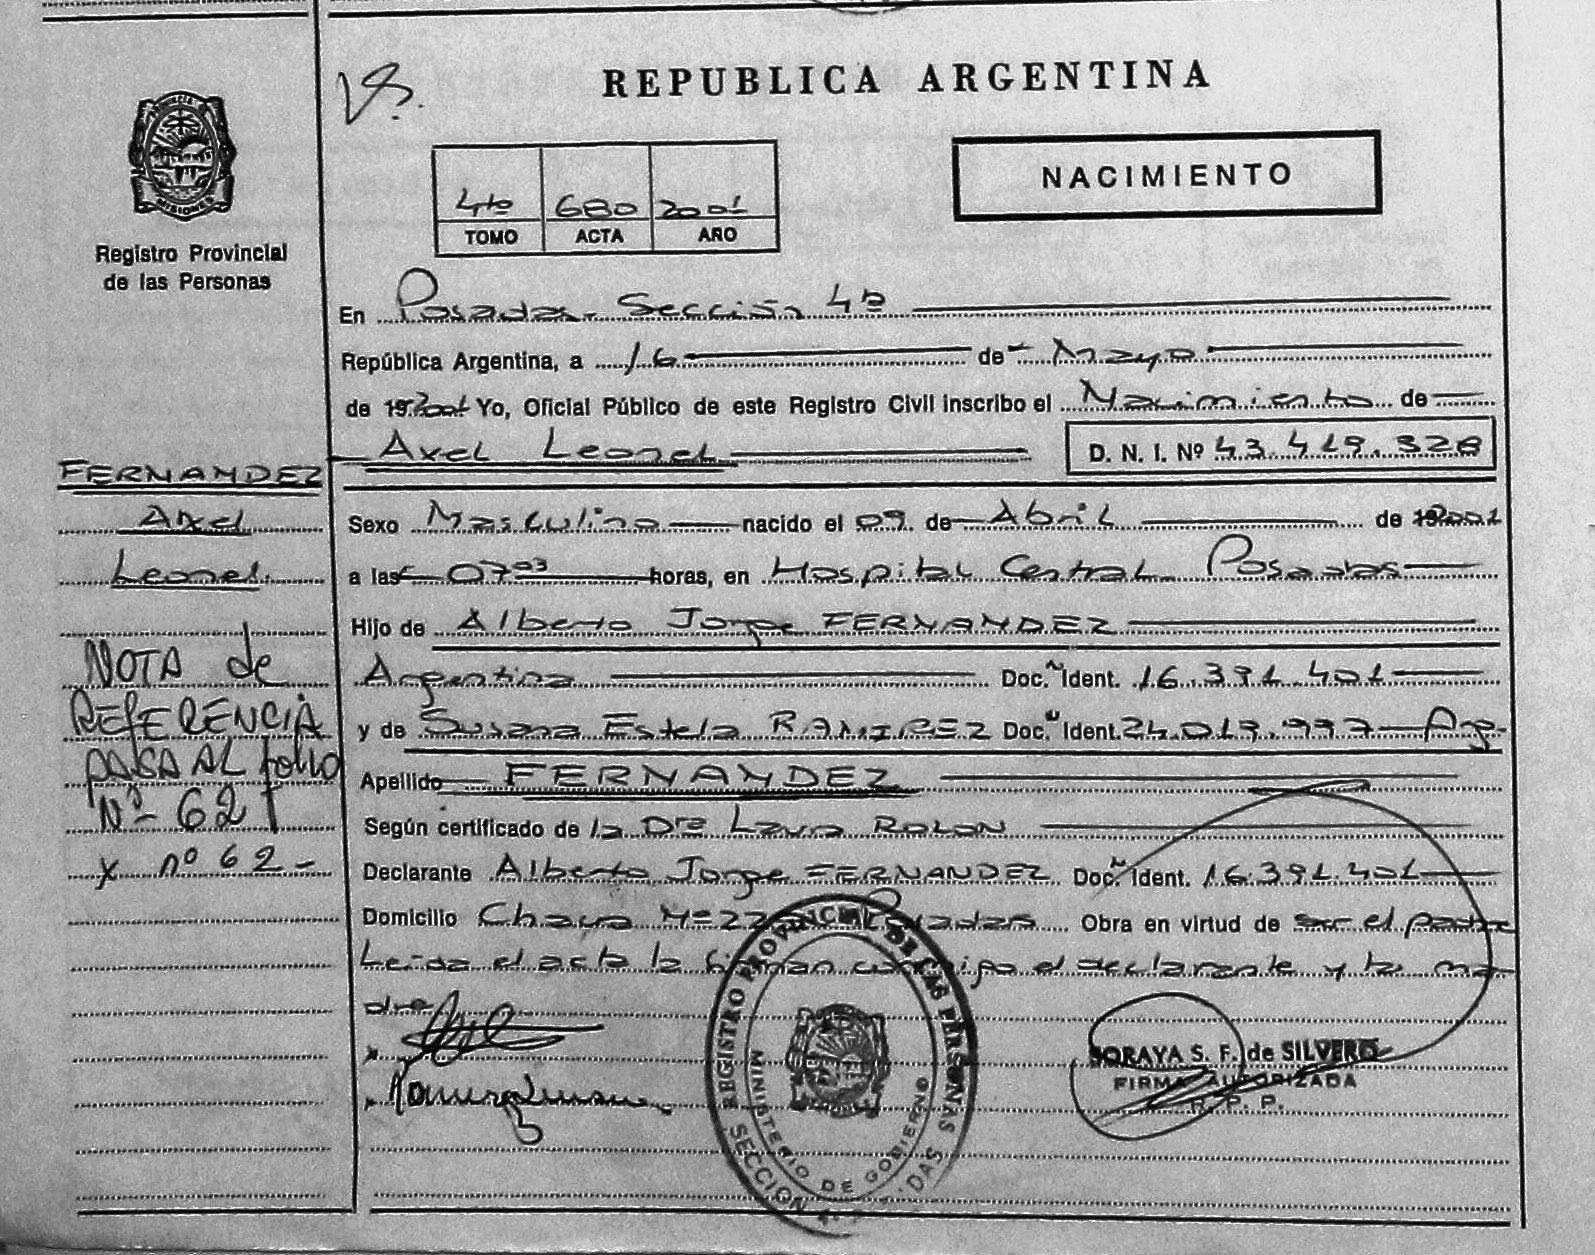 REPUBLICA ARGENTINA
NACIMIENTO
4to 680 2001
TOMO ACTA AÑO
MISIONES
Registro Provincial
de las Personas
En Posadas - Sección 4ª
República Argentina, a 16 de Mayo
de 19 2001 Yo, Oficial Público de este Registro Civil inscribo el Nacimiento de
Axel Leonel D. N. I. Nº 43.419.328
FERNANDEZ
Axel
Leonel.
Sexo Masculino nacido el 09 de Abril de 19 2001
a las 07 03 horas, en Hospital Central Posadas
Hijo de Alberto Jorge FERNANDEZ
Argentina Doc. Ident. 16.391.401
y de Susana Estela RAMIREZ Doc. Ident. 24.019.997 - Arg.
Apellido FERNANDEZ
Según certificado de la Dra Laura ROLON
Declarante Alberto Jorge FERNANDEZ Doc. Ident. 16.391.401
Domicilio Chacra Nº 22 Posadas Obra en virtud de ser el padre
Leída el acta la firman conmigo el declarante y la ma-
dre
NOTA de
REFERENCIA
PASA AL folio
Nº 62
x nº 62 -
REGISTRO PROVINCIAL DE LAS PERSONAS
MINISTERIO DE GOBIERNO
SECCION 4
SORAYA S. F. de SILVERO
FIRMA AUTORIZADA
R. P. P.